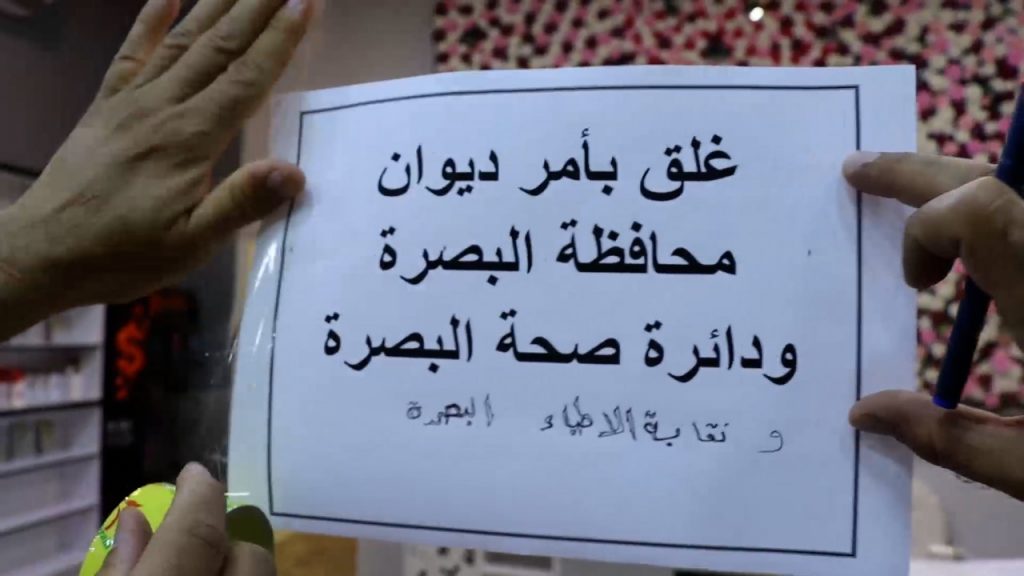 غلق بأمر ديوان
محافظة البصرة
ودائرة صحة البصرة
و نقابة الاطباء البصرة